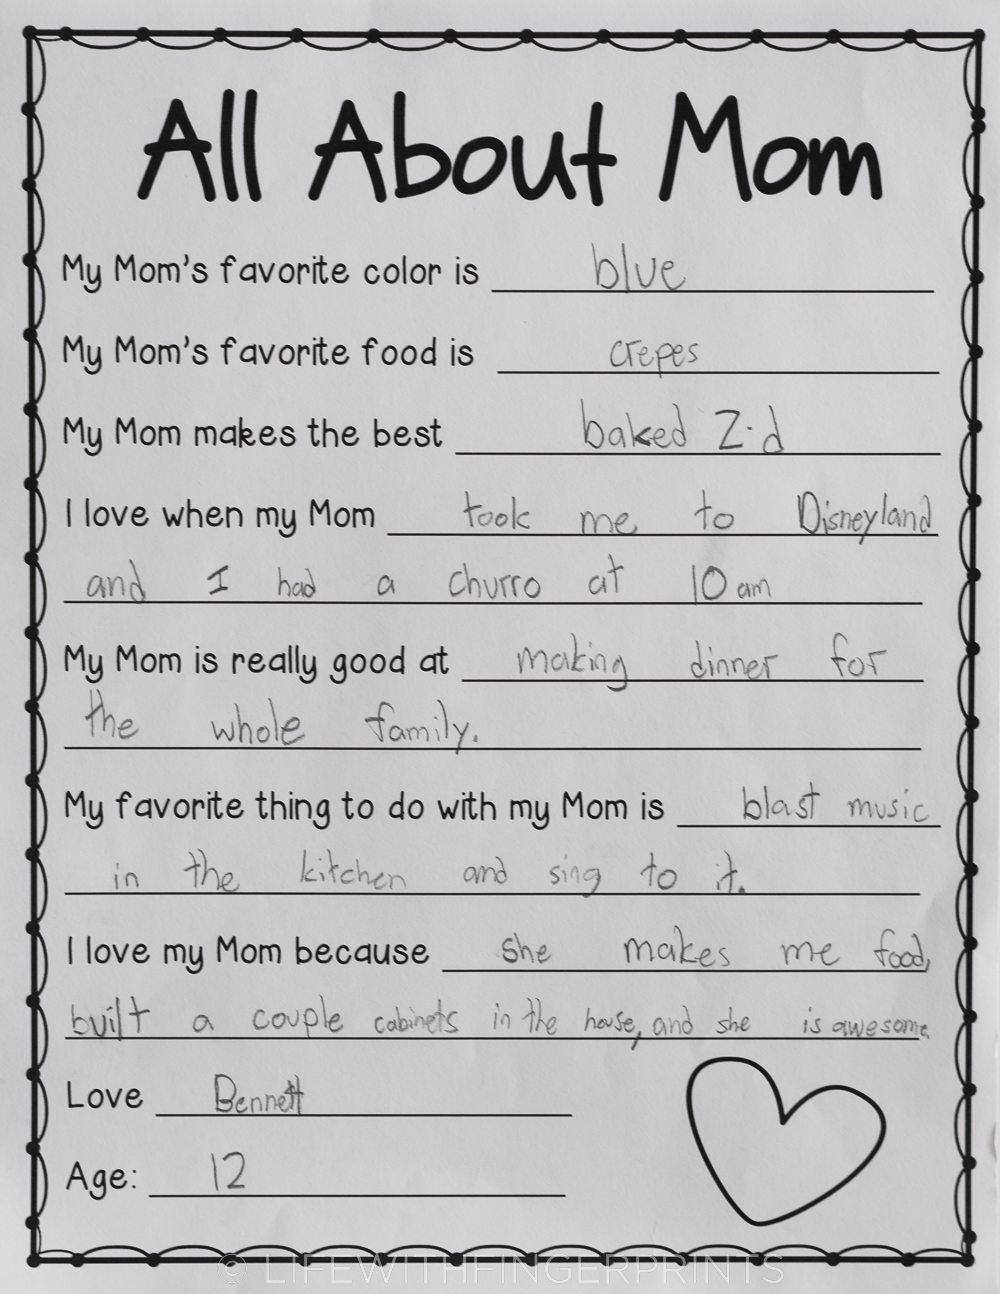 All About Mom
My Mom's favorite color is blue
My Mom's favorite food is crepes
My Mom makes the best baked Z.d
I love when my Mom took me to Disneyland
and I had a churro at 10 am
My Mom is really good at making dinner for
the whole family.
My favorite thing to do with my Mom is blast music
in the kitchen and sing to it.
I love my Mom because she makes me food,
built a couple cabinets in the house, and she is awesome.
Love Bennett
Age: 12
© LIFEWITHFINGERPRINTS